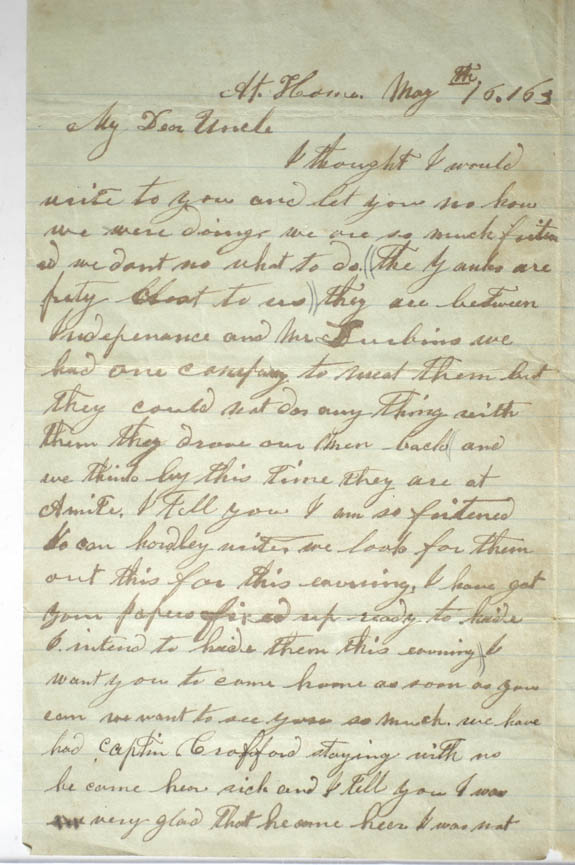 At. Home. May 16th. 163
My Dear Uncle
I thought I would
write to you and let you no how
we were doing, we are so much friten
ed we dont no what to do. ((The Yanks are
prity clost to us)) they are between
Independance and Mr Durbins we
had one company to meat them but
they could not do any thing with
them they drove our men back) and
we think by this time they are at
Amite. I tell you I am so fritened
I can hardley write. we look for them
out this far this eavning, I have got
your papers fixed up ready to haide
I intend to haide them this eavning)) I
want you to come home as soon as you
can we want to see you so much. we have
had Captin Crofford staying with us
he came hear sick and I tell you I was
very glad that he came hear I was not